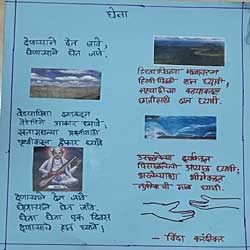 घेता
देणाऱ्याने देत जावे;
घेणाऱ्याने घेत जावे.
हिरव्यापिवळ्या माळावरून
हिरवीपिवळी शाल घ्यावी,
सह्याद्रीच्या कड्याकडून
छातीसाठी ढाल घ्यावी.
वेड्यापिशा ढगाकडून
वेडेपिसे आकार घ्यावे;
रक्तामधल्या प्रश्नांसाठी
पृथ्वीकडून होकार घ्यावे
उसळलेल्या दर्याकडून
पिसाळलेली आयाळ घ्यावी;
भरलेल्याशा भीमेकडून
तुकोबाची माळ घ्यावी;
देणाऱ्याने देत जावे
घेणाऱ्याने घेत जावे;
घेता घेता एक दिवस
देणाऱ्याचे हात घ्यावे!
- विंदा करंदीकर